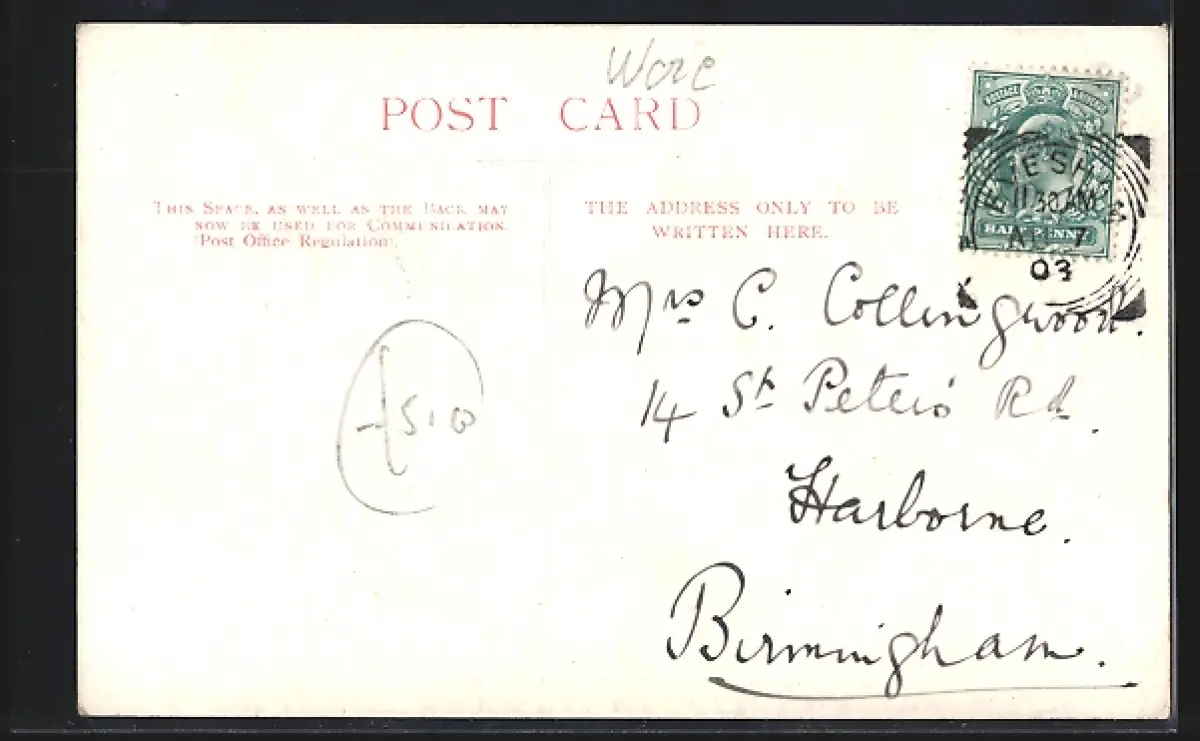 Worc
POST CARD
THIS SPACE, AS WELL AS THE BACK MAY
NOW BE USED FOR COMMUNICATION.
(Post Office Regulation).
THE ADDRESS ONLY TO BE
WRITTEN HERE.
EVESHAM
11.30 AM
AP 7
03
HALFPENNY
Mrs C. Collingwood.
14 St Peter's Rd.
Harborne.
Birmingham.